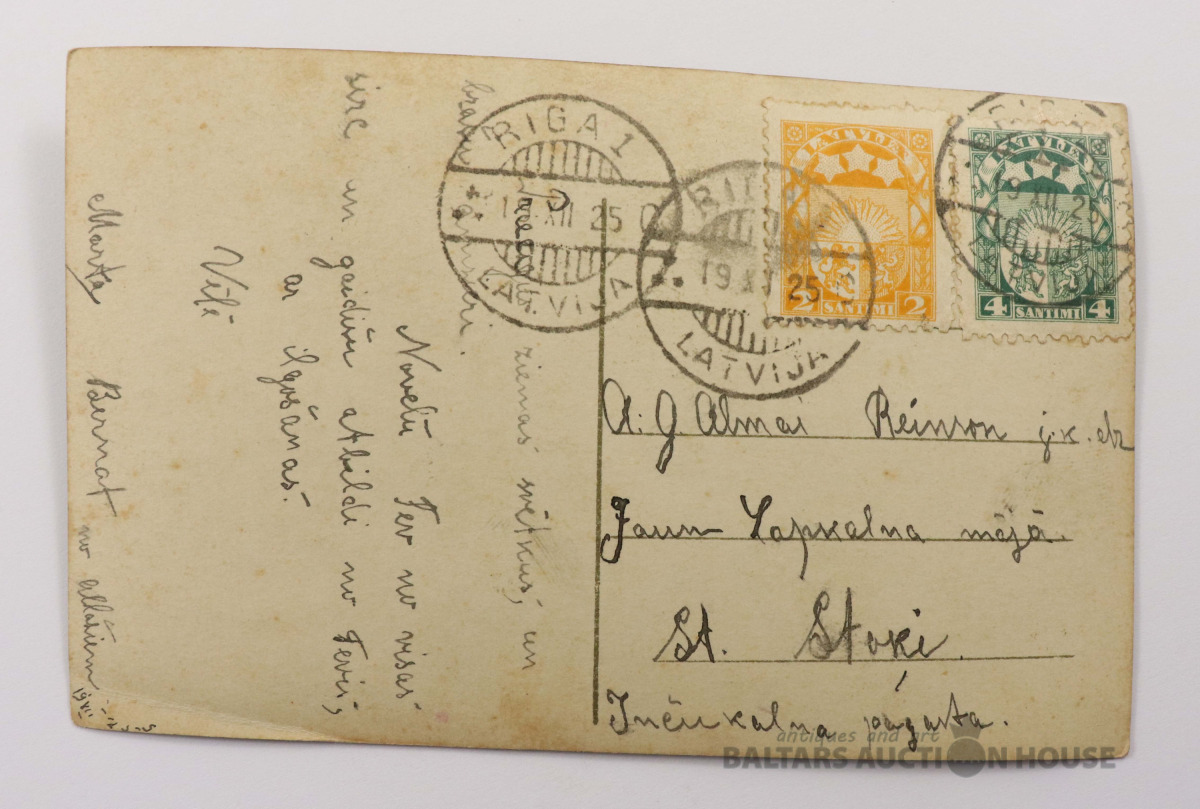 ziemas svētkus, un
Novēlu Tev no visas
sirc un gaidīšu atbildi no Tevis,
ar ilgošanas.
Vilē
Marta Bernat no allašiem
RIGA 1
XII 25
LATVIJA
RIGA
19 XII 25
LATVIJA
19 XII 25
LATVIJA
2 SANTIMI 2
LATVIJA
4 SANTIMI 4
A. G Almai Reinson
Jaun Lapkalna mājā.
St. Stoķi.
Inčukalna pagasta.
antiques and art
BALTARS AUCTION HOUSE